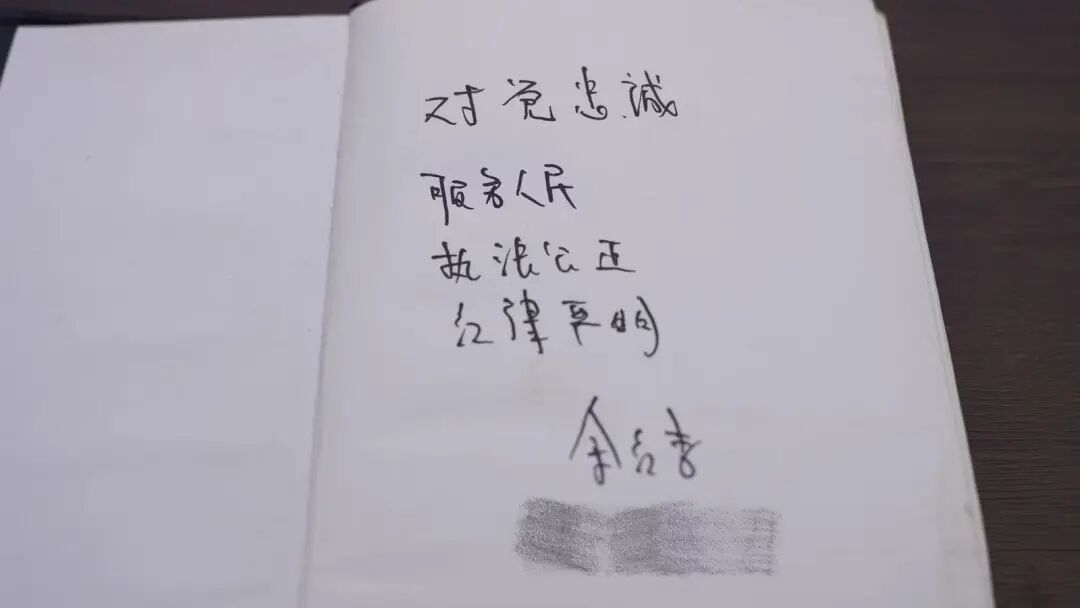 对党忠誠
服务人民
执法公正
纪律严明
余